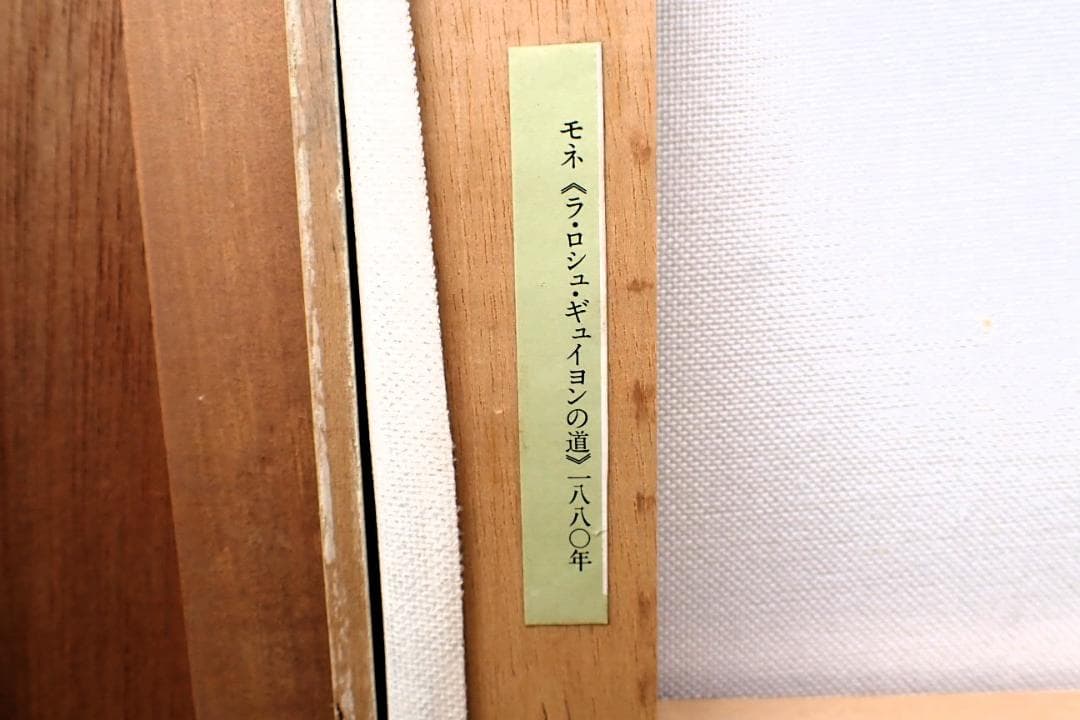 モネ《ラ・ロシュ・ギュイヨンの道》一八八〇年